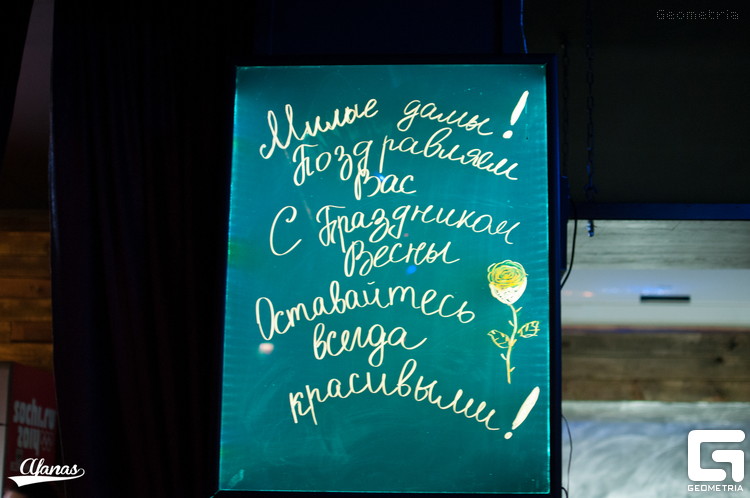 Geometria
Милые дамы!
Поздравляем
Вас
С Праздником
Весны
Оставайтесь
всегда
красивыми!
sochi.ru
2014
Afanas
GEOMETRIA